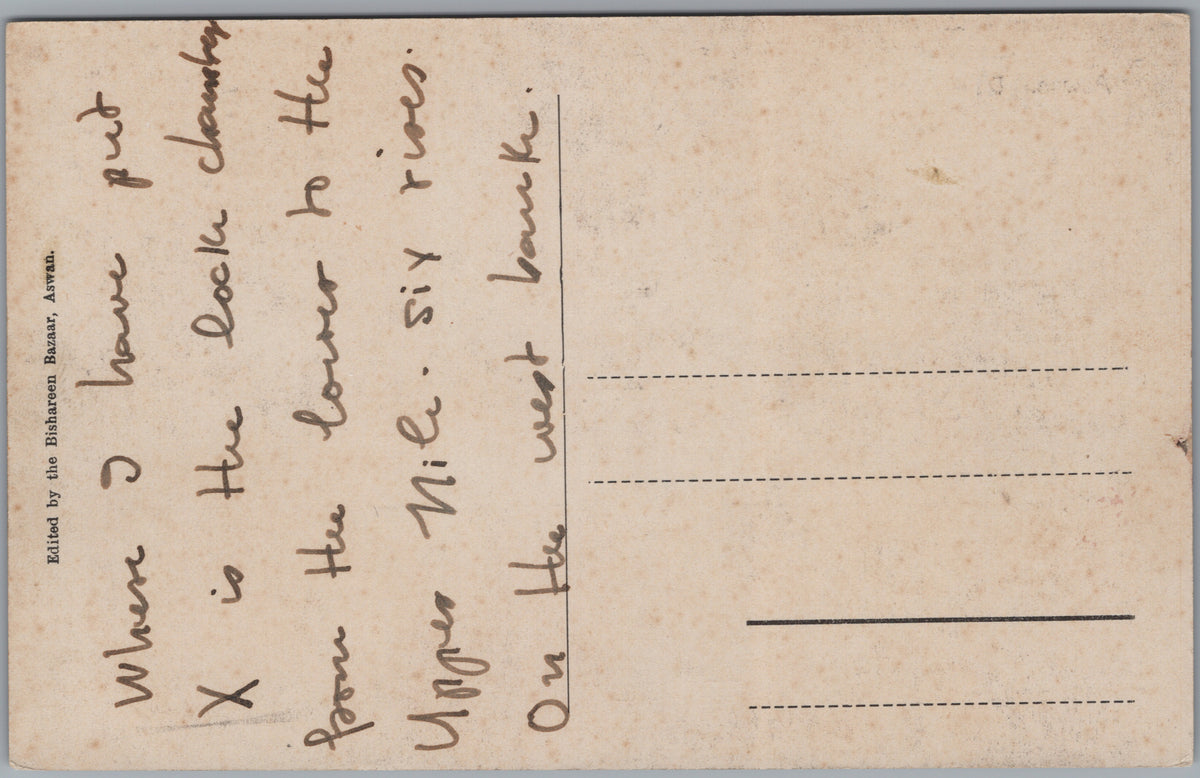 Where I have put
X is the lock chamber
from the lower to the
Upper Nile. six rises.
On the west bank.
Edited by the Bishareen Bazaar, Aswan.